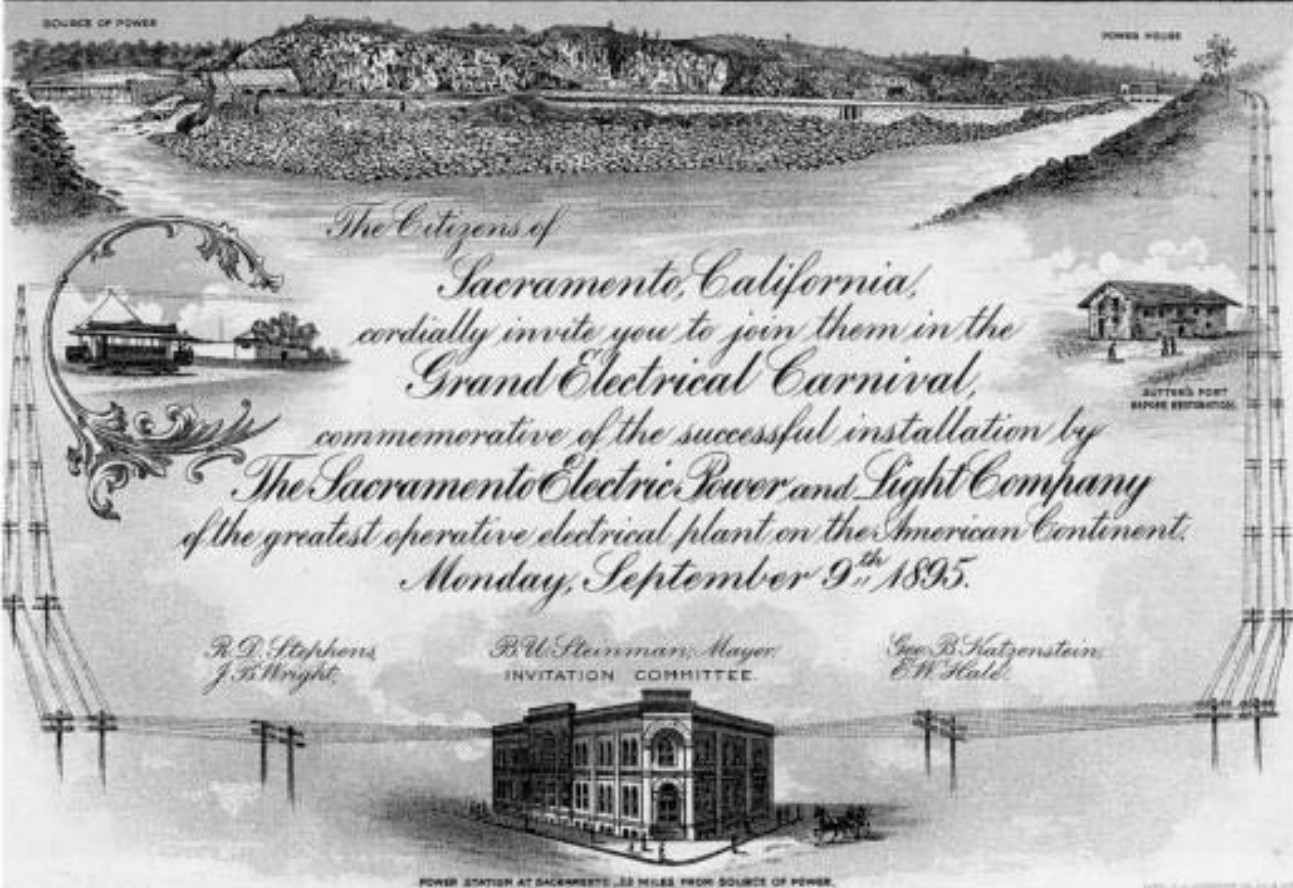 SOURCE OF POWER
POWER HOUSE
The Citizens of
Sacramento, California,
cordially invite you to join them in the
Grand Electrical Carnival,
SUTTER'S FORT
BEFORE RESTORATION.
commemorative of the successful installation by
The Sacramento Electric Power and Light Company
of the greatest operative electrical plant on the American Continent.
Monday, September 9th 1895.
R. D. Stephens,
J. B. Wright,
B. U. Steinman, Mayor.
INVITATION COMMITTEE.
Geo. B. Katzenstein,
E. W. Hale.
POWER STATION AT SACRAMENTO MILES FROM SOURCE OF POWER.